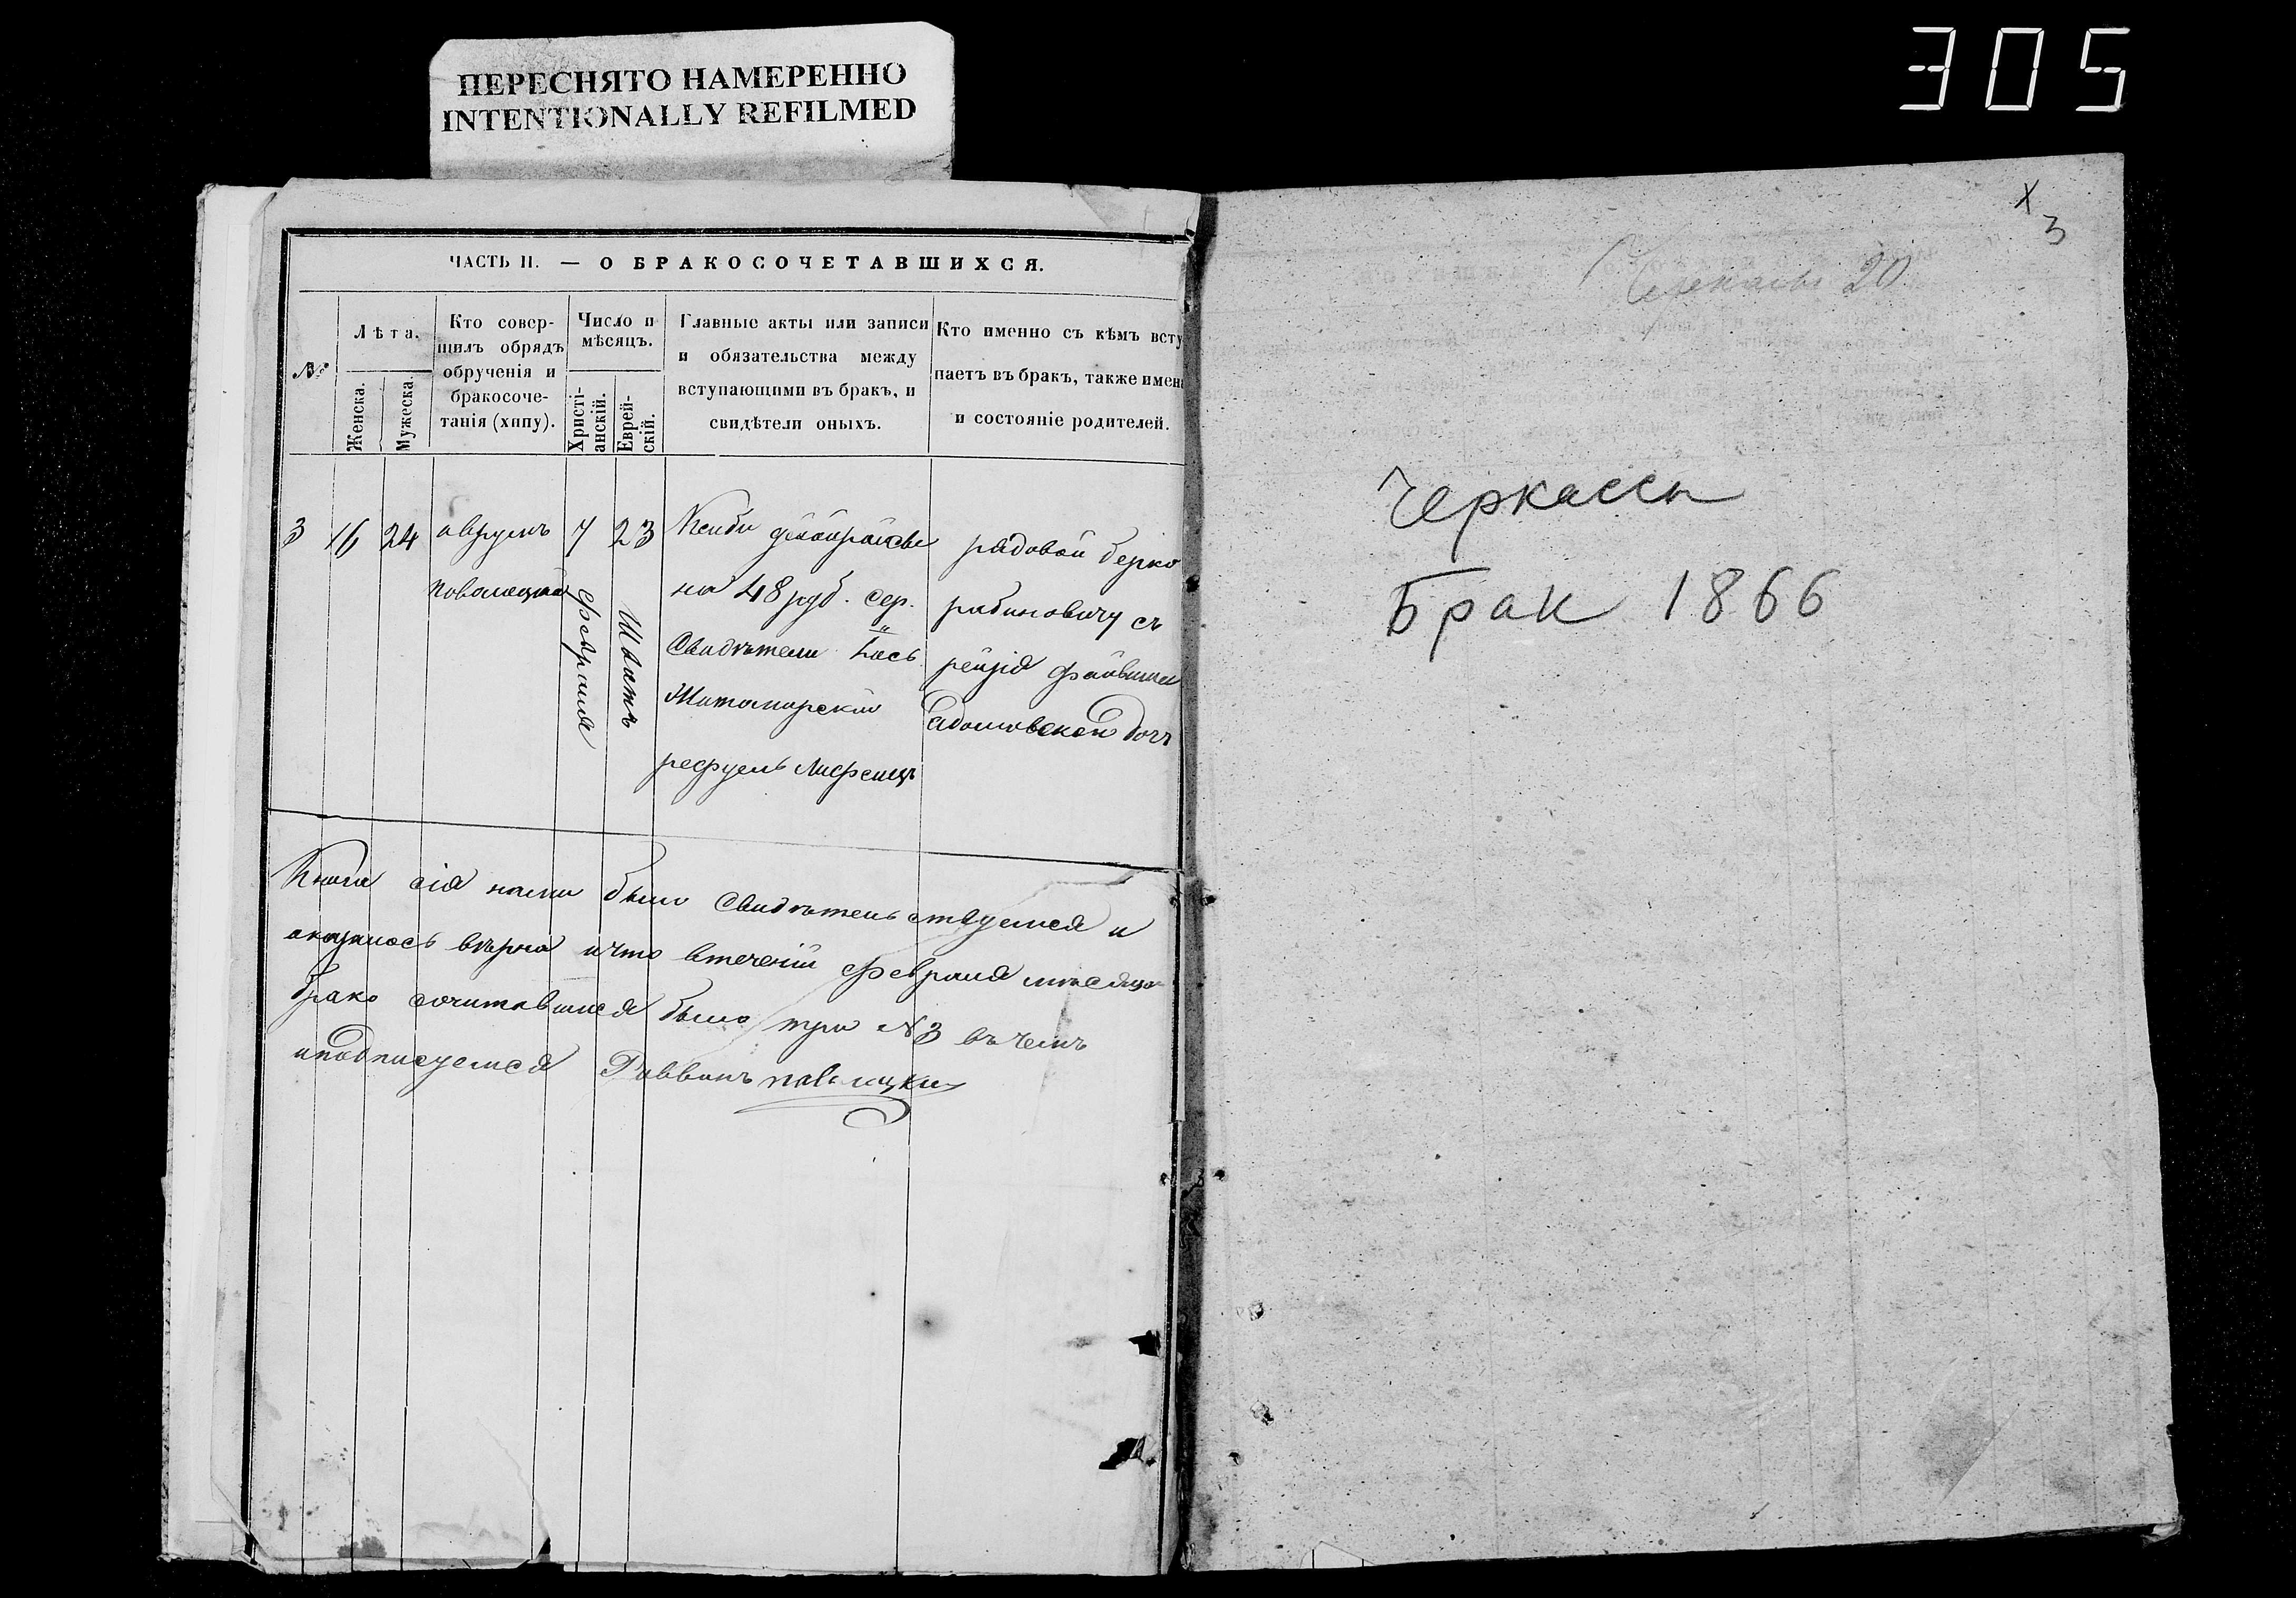 ПЕРЕСНЯТО НАМЕРЕННО
INTENTIONALLY REFILMED
305
ЧАСТЬ II. — О БРАКОСОЧЕТАВШИХСЯ.
№
Лѣта.
Женска.
Мужеска.
Кто совер-
шилъ обрядъ
обрученія и
бракосоче-
танія (хипу).
Число и
мѣсяцъ.
Христі-
анскій.
Еврей-
скій.
Главные акты или записи
и обязательства между
вступающими въ бракъ, и
свидѣтели оныхъ.
Кто именно съ кѣмъ всту
паетъ въ бракъ, также имен
и состояніе родителей.
3 16 24
7
Февраля
23
Шватъ
на 48 руб. сер.
Свидѣтели
Житомирскій
рядовой берко
рабиновичу съ
Книга сія нами было свидѣтельствуемся и
оказалось вѣрна и что втеченіи февраля мѣсяца
брако сочитавшися было три №3 въ чемъ
и подписуемся Раввинъ паволицкий
х
3
Черкассы 20
Черкассы
Брак 1866